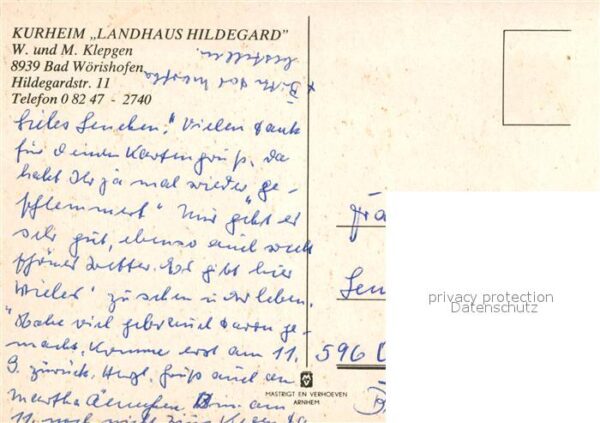 KURHEIM „LANDHAUS HILDEGARD"
W. und M. Klepgen
8939 Bad Wörishofen
Hildegardstr. 11
Telefon 0 82 47 - 2740
bestellen
x Bitte
Liebes Lenchen! Vielen Dank
für Deinen Kartengruß. Da
habt Ihr ja mal wieder „ge-
schlemmert" Mir geht es
sehr gut, ebenso auch
schönes Wetter. Es gibt hier
Vieles zu sehen u. erleben.
Habe viel Gebrauch davon ge-
macht. Komme erst am 11.
9. zurück. Herzl. Grüße auch an
Martha Bin am
11. noch nicht zum
Fra
Len
596
MASTRIGT EN VERHOEVEN
ARNHEM
privacy protection
Datenschutz